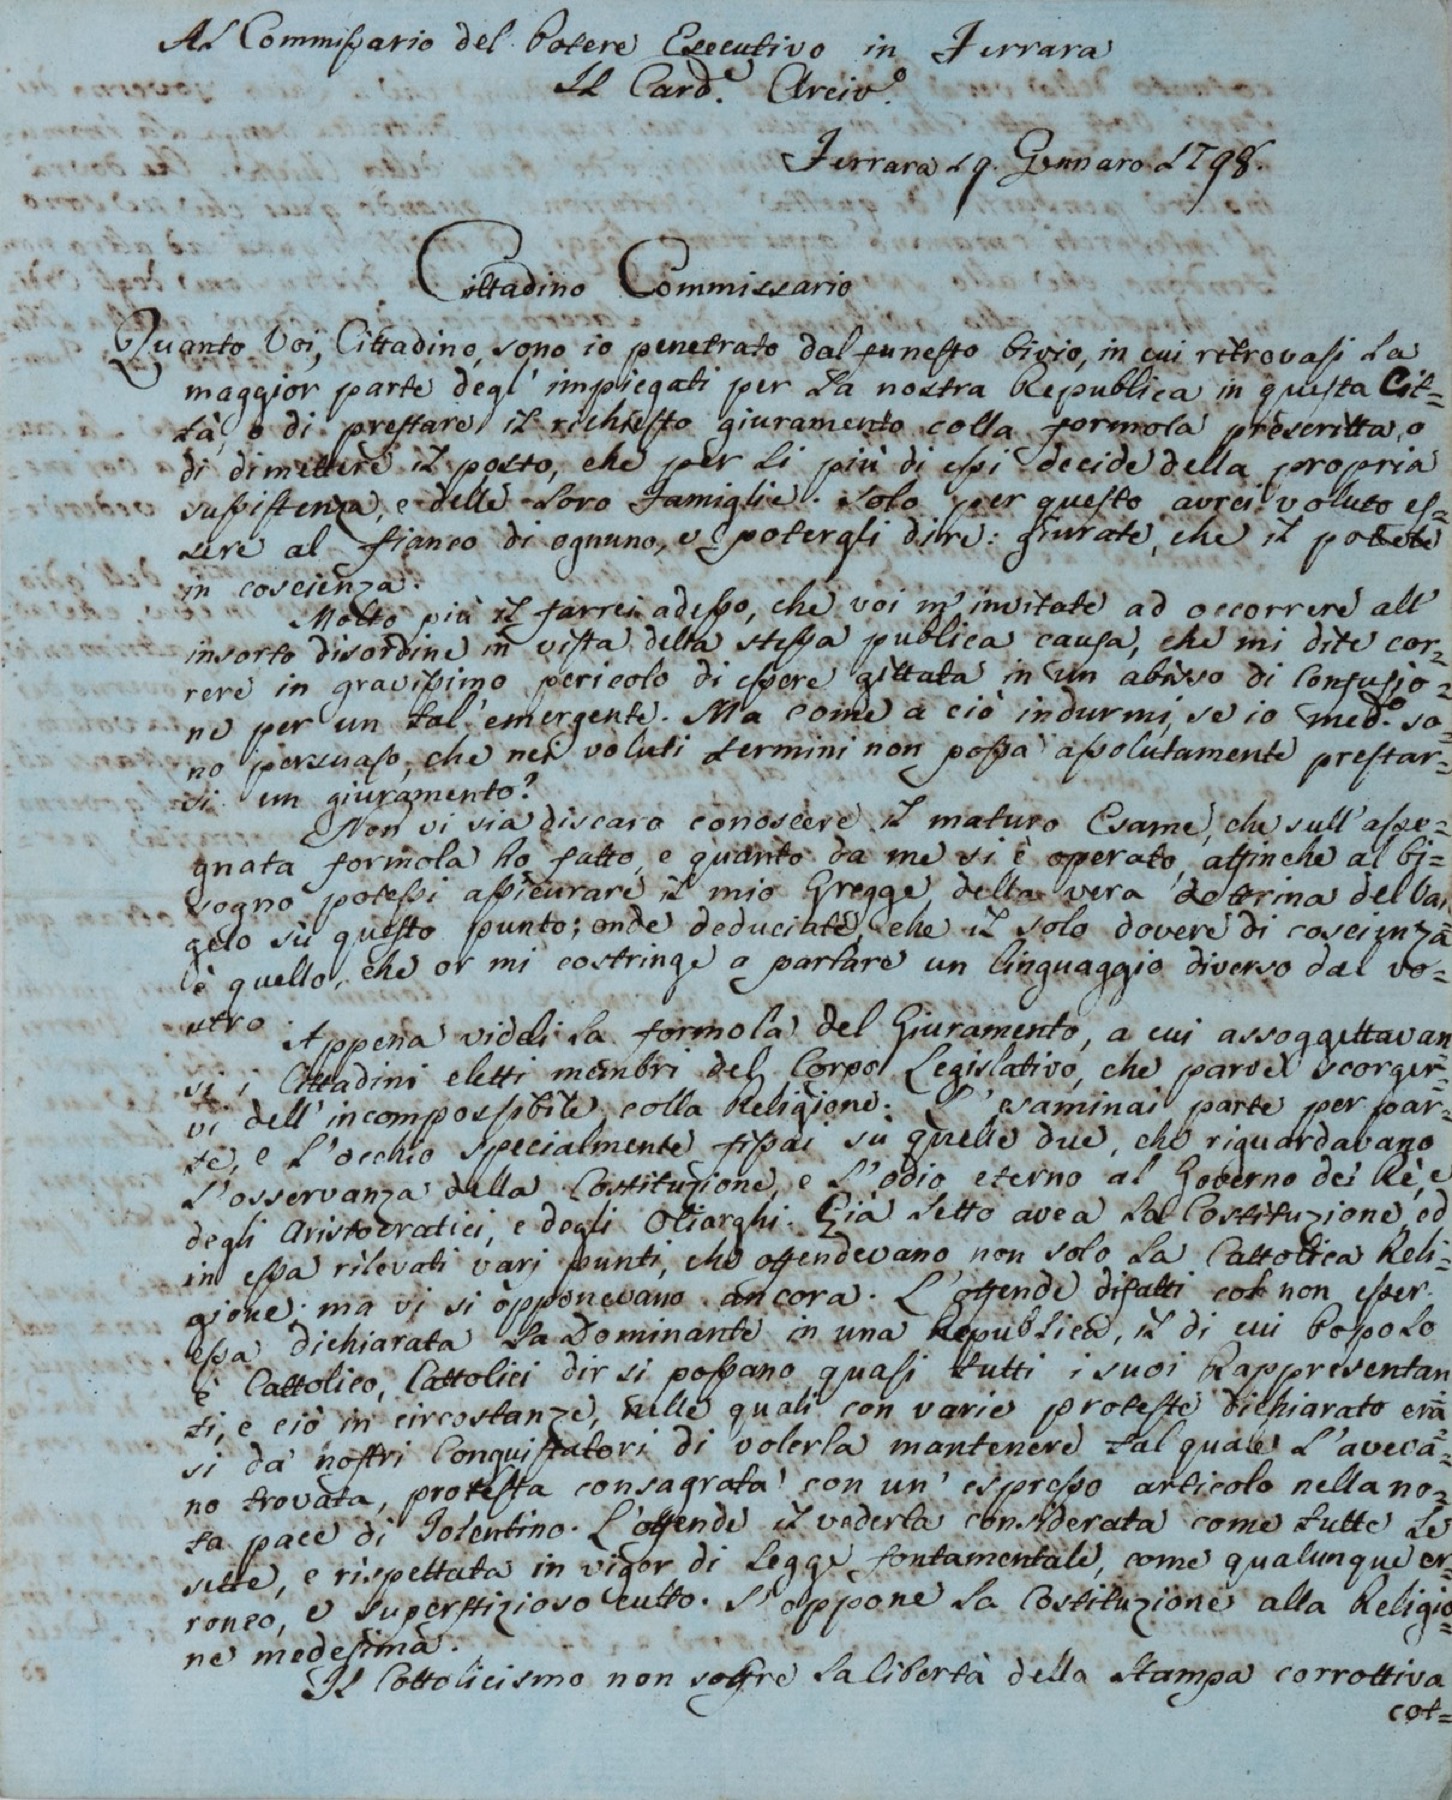 Al Commissario del Potere Esecutivo in Ferrara
Il Card.e Arciv.o
Ferrara 19. Gennaro 1798.
Cittadino Commissario
Quanto Voi, Cittadino, sono io penetrato dal funesto bivio, in cui ritrovasi la
maggior parte degl' impiegati per la nostra Republica in questa Cit=
tà, o di prestare il richiesto giuramento colla formola prescritta, o
di dimettere il posto, che per li più di essi decide della propria
sussistenza, e delle loro Famiglie. Solo per questo avrei voluto es=
sere al fianco di ognuno, e potergli dire: giurate, che il potete
in coscienza.
Molto più il farrei adesso, che voi m' invitate ad occorrere all'
insorto disordine in vista della stessa publica causa, che mi dite cor=
rere in gravissimo pericolo di essere gittata in un abisso di Confusio=
ne per un tal' emergente. Ma come a ciò indurmi, se io med.o so=
no persuaso, che nei voluti termini non possa assolutamente prestar=
si un giuramento?
Non vi sia discaro conoscere il maturo Esame, che sull' asse=
gnata formola ho fatto, e quanto da me si è operato, affinche al bi=
sogno potessi assicurare il mio Gregge della vera dottrina del Van
gelo sù questo punto; onde deduciate, che il solo dovere di coscienza
è quello, che or mi costringe a parlare un linguaggio diverso dal vo=
stro.
Appena vidi la formola del Giuramento, a cui assoggettavan
si i Cittadini eletti membri del Corpo Legislativo, che parve scorger=
vi dell' incompossibile colla Religione. L' esaminai parte per par=
te, e l'occhio specialmente fissai sù quelle due, che riguardavano
l'osservanza della Costituzione, e l'odio eterno al Governo dei Rè, e
degli Aristocratici, e degli Oliarghi. Già letto avea la Costituzione, ed
in essa rilevati varj punti, che offendevano non solo la Cattolica Reli=
gione; ma vi si opponevano ancora. L'offende difatti col non esser
essa dichiarata la Dominante in una Republica, il di cui Popolo
è Cattolico, Cattolici dir si possano quasi tutti i suoi Rappresentan
ti, e ciò in circostanze, nelle quali con varie proteste dichiarato eran=
si da' nostri Conquistatori di volerla mantenere tal quale l'aveva=
no trovata, protesta consagrata con un' espresso articolo nella no=
ta pace di Tolentino. L'offende il vederla considerata come tutte le
sette, e rispettata in vigor di legge fontamentale, come qualunque er=
roneo, e superstizioso culto. S'oppone la Costituzione alla Religio=
ne medesima.
Il Cottolicismo non soffre la libertà della Stampa corrottiva
cot=